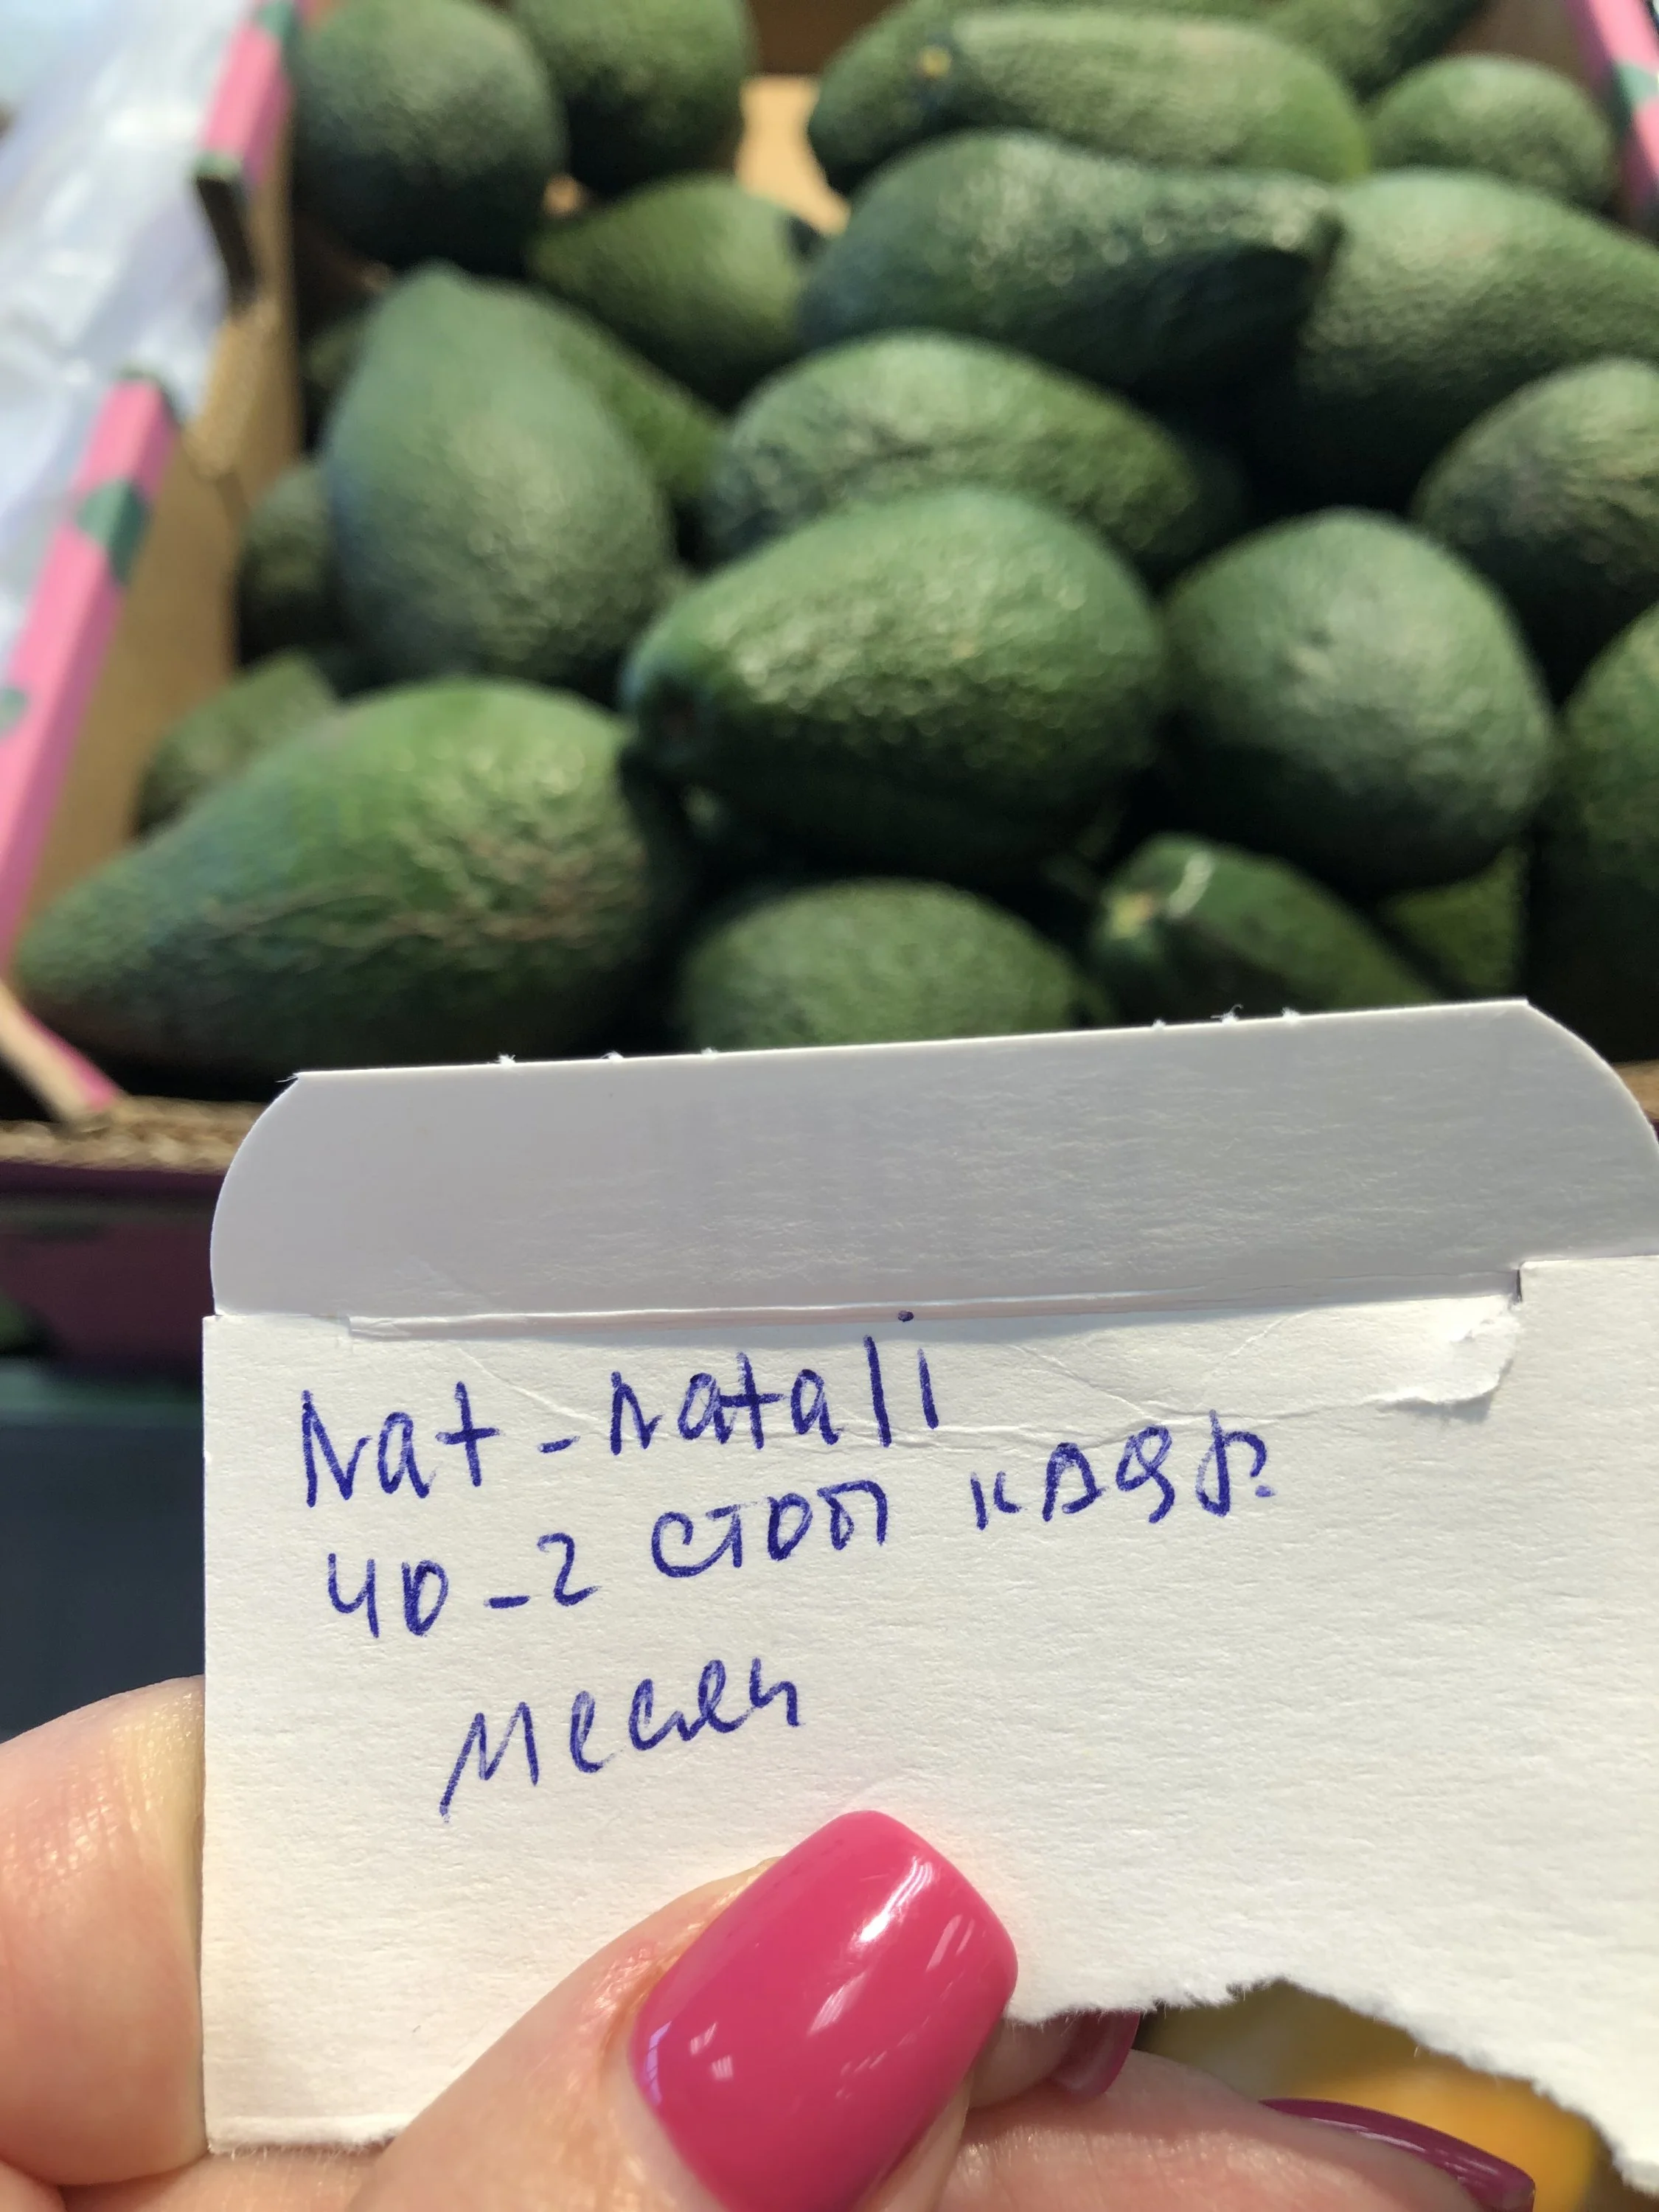 Nat-natali
ЧО-2 СТОП КАДР.
Месяц